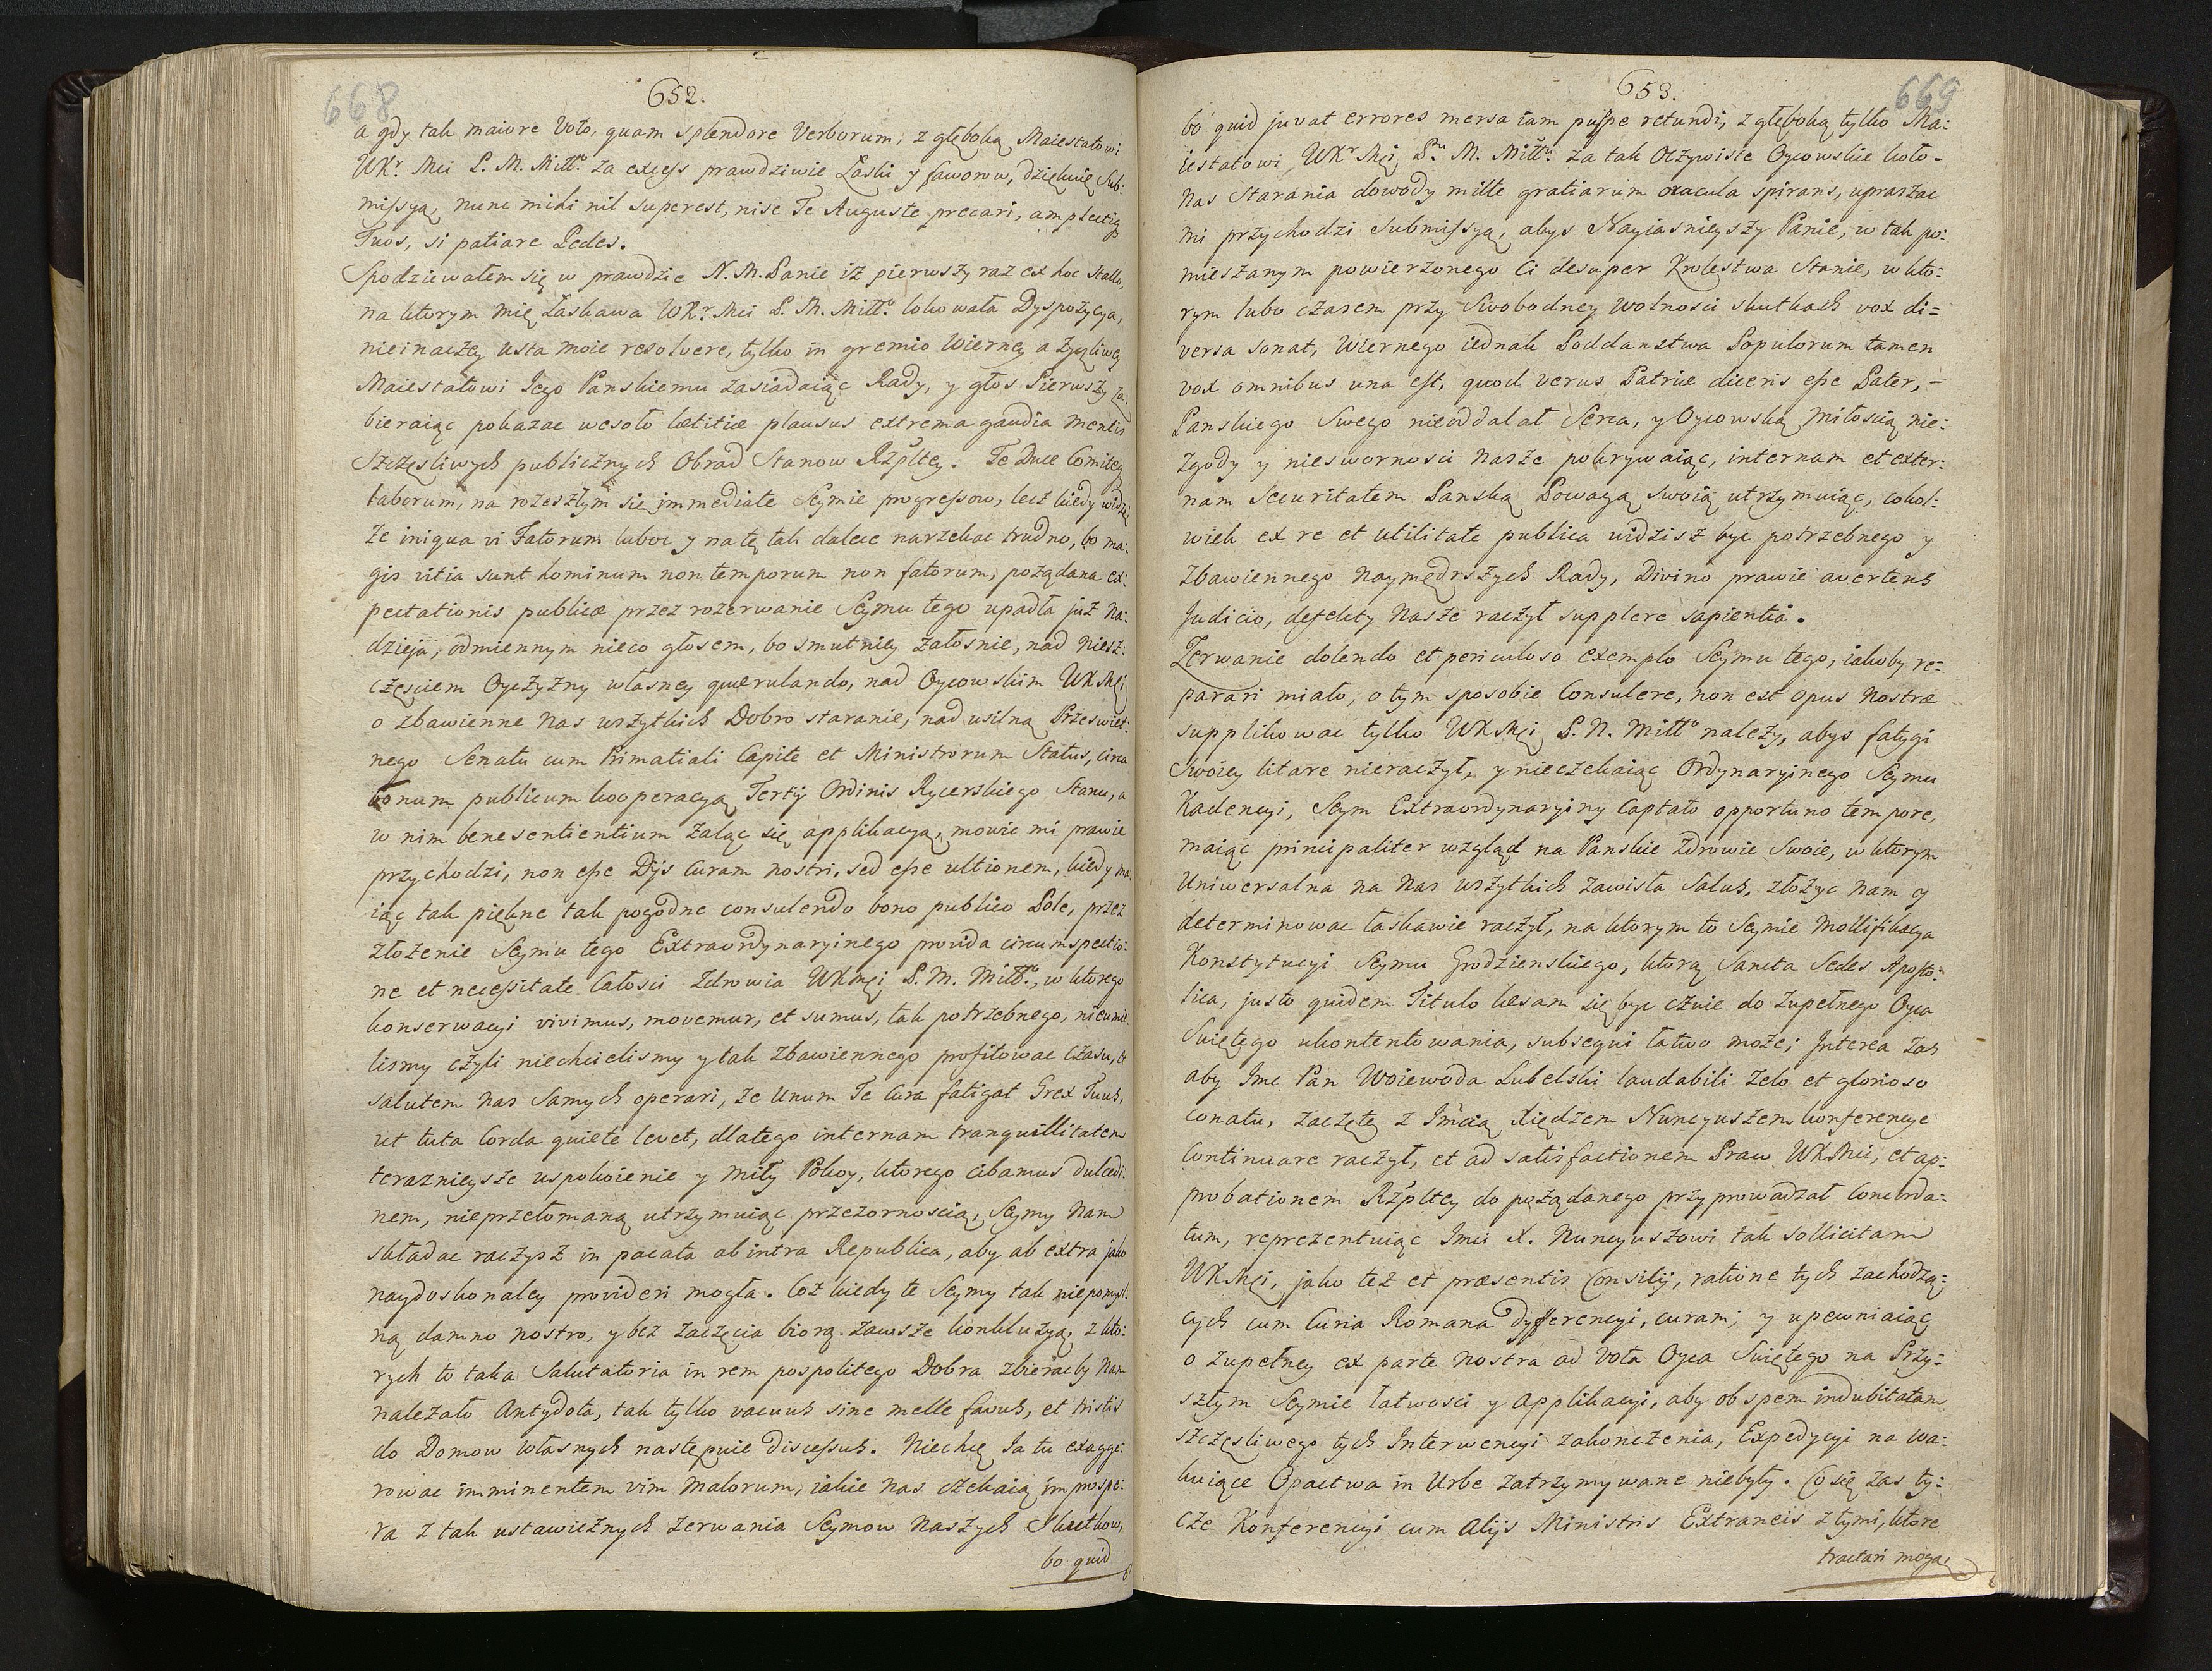 668
652.
a gdy tak maiore Voto, quam splendore Verborum, z głęboką Maiestatowi
WKr. Mci P. M. Miłł. za excess prawdziwie Łaski y faworow, dziękuię Sub:
missyą, nunc mihi nil superest, nise Te Auguste precari, amplectiq
Tuos, si patiare Pedes.
Spodziewałem się w prawdzie N. M. Panie iż pierwszy raz ex hoc Stallo,
na ktorym mię Łaskawa WKr. Mci P. M. Miłł. lokowała Dyspozycya,
nieinaczey usta moie resolvere, tylko in gremio Wierney a życzliwey
Maiestatowi Iego Panskiemu zasiadaiąc Rady, y głos Pierwszy za:
bieraiąc pokazac wesoło lætitiæ plausus extrema gaudia mentis
Szczęsliwych publicznych Obrad Stanow Rzpltey. Te Duce Comiteq
laborum, na rozeszłym się immediate Seymie progressow, lecz kiedy widzę
że iniqua vi Fatorum luboc y na tę tak dalece narzekac trudno, bo ma:
gis vitia sunt hominum non temporum non fatorum, pożądana ex:
pectationis publicæ przez rozerwanie Seymu tego upadła już na:
dzieja, odmiennym nieco głosem, bo smutniey żałosnie, nad niesz:
częsciem Oyczyzny własney querulando, nad Oycowskim WKMci
o zbawienne nas wszytkich Dobro staranie, nad usilną Przeswiet:
nego Senatu cum Primatiali Capite et Ministrorum Status, circa
bonum publicum kooperacyą Tertij Ordinis Rycerskiego Stanu, a
w nim benesentientium żaląc się applikacyą, mowic mi prawie
przychodzi, non esse Dijs curam nostri, sed esse ultionem, kiedy ma:
iąc tak piękne tak pogodne consulendo bono publico Pole, przez
złożenie Seymu tego Extraordynaryinego provida circumspectio:
ne et necessitate Całosci Zdrowia WKMci P. M. Miłł., w ktorego
konserwacyi vivimus, movemur, et sumus, tak potrzebnego, nieumie:
lismy czyli niechcielismy y tak zbawiennego profitowac czasu, et
salutem nas samych operari, że Unum Te Cura fatigat Grex Tuus,
ut tuta Corda quiete levet, dlatego internam tranquillitatem
terazniegsze uspokoienie y miły Pokoy, ktorego cibamus dulcedi:
nem, nieprzełomaną utrzymuiąc przezornoscią, Seymy nam
składac raczysz in pacata ab intra Republica, aby ab extra jako
naydoskonaley provideri mogła. Coż kiedy te Seymy tak niepomysl:
ną damno nostro, y bez zaczęcia biorą zawsze konkluzyą, z kto:
rych to taka Salutatoria in rem pospolitego Dobra zbieracby nam
należało Antydota, tak tylko vacuus sine melle favus, et tristis
do Domow własnych następuie discessus. Niechcę Ia tu exagge:
rowac imminentem vim malorum, iakie nas czekaią im prospe:
ra z tak ustawicznych zerwania Seymow naszych Skutkow,
bo quid
669
653.
bo quid juvat errores mersa iam puppe retundi, z głęboką tylko Ma:
iestatowi, WKr Mci, P. M. Miłł. za tak Oczywiste Oycowskie koło
nas Starania dowody mille gratiarum oracula spirans, upraszac
mi przychodzi submissyą, abys Nayiasnieyszy Panie, w tak po:
mieszanym powierzonego Ci desuper Krolestwa Stanie, w kto:
rym lubo czasem przy Swobodney wolnosci skutkach vox di=
versa sonat, Wiernego iednak Poddanstwa Populorum tamen
vox omnibus una est, quod verus Patriæ diceris esse Pater,
Panskiego Swego nieoddalał Serca, y Oycowską miłoscią nie:
zgody y nieswornosci nasze pokrywaiąc, internam et exter:
nam securitatem Panską Powagą swoią utrzymuiąc, cokol:
wiek ex re et utilitate publica widzisz byc potrzebnego y
zbawiennego naymędrszych Rady, Divino prawie avertens
Judicio, defekty nasze raczył supplere sapientia.
Zerwanie dolendo et periculoso exemplo Seymu tego, iakoby re=
parari miało, o tym sposobie Consulere, non est opus nostræ
supplikowac tylko WKMci P. N. Miłł należy, abys fatygi
Swoiey litare nieraczył, y nieczekaiąc Ordynaryinego Seymu
Kadencyi, Seym Extraordynaryiny Captato opportuno tempore,
maiąc principaliter wzgląd na Panskie Zdrowie Swoie, w ktorym
Uniwersalna na nas wszytkich zawisła Salus, złożyc nam y
determinowac łaskawie raczył, na ktorym to Seymie Mollifikacya
Konstytucyi Seymu Grodzienskiego, ktorą Sancta Sedes Aposto:
lica, justo quidem Titulo læsam się byc czuie do zupełnego Oyca
Swiętego ukontentowania, subsequi łatwo może; Interea zas
aby Imc Pan Woiewoda Lubelski laudabili zelo et glorioso
conatu, zaczętę z Imcią Xiędzem Nuncyuszem konferencye
Continuare raczył, et ad satisfactionem Praw WKMci, et ap:
probationem Rzpltey do pożądanego przyprowadzał Concorda:
tum, reprezentuiąc Imci X. Nuncyuszowi tak sollicitam
WKMci, jako też et præsentis Consilij, ratione tych zachodzą:
cych cum Curia Romana Dyfferencyi, curam; y upewniaiąc
o zupełney ex parte nostra ad vota Oyca Swiętego na Przy:
szłym Seymie łatwosci y Applikacyi, aby ob spem indubitatam
szczęsliwego tych Interwencyi zakonczenia, Expedycyi na wa:
kuiące Opactwa in Urbe zatrzymywane niebyły. Co się zas ty:
cze Konferencyi cum alijs Ministris Extraneis z tymi, ktore
tractari mogą